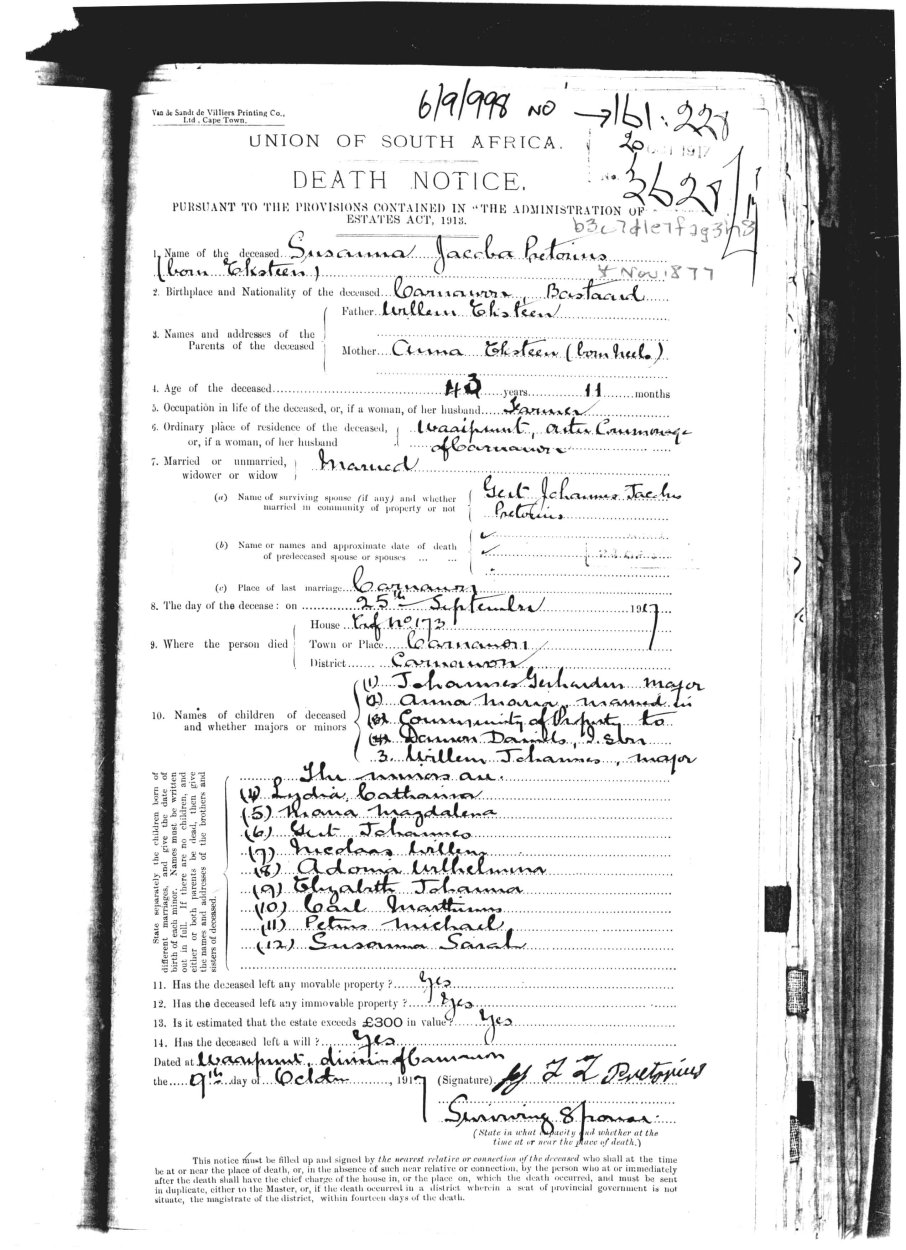 6/9/998 NO → 161: 228
Van de Sandt de Villiers Printing Co.,
Ltd., Cape Town.
UNION OF SOUTH AFRICA.
20 1917
No. 3628
DEATH NOTICE.
PURSUANT TO THE PROVISIONS CONTAINED IN "THE ADMINISTRATION OF
ESTATES ACT, 1913.
b3c7d1e7fag3h8
1. Name of the deceased Susanna Jacoba Pretorius
(born Eksteen) Nov 1877
2. Birthplace and Nationality of the deceased Carnarvon, Bastaard
3. Names and addresses of the Parents of the deceased
Father Willem Eksteen
Mother Anna Eksteen (born Neels)
4. Age of the deceased 43 years 11 months
5. Occupation in life of the deceased, or, if a woman, of her husband Farmer
6. Ordinary place of residence of the deceased, Waaipunt, Commonage
or, if a woman, of her husband of Carnarvon
7. Married or unmarried, Married
widower or widow
(a) Name of surviving spouse (if any) and whether Gert Johannes Jacobus
married in community of property or not Pretorius
(b) Name or names and approximate date of death
of predeceased spouse or spouses ... ...
(c) Place of last marriage Carnarvon
8. The day of the decease: on 25th September 1917
9. Where the person died
House Erf No 173
Town or Place Carnarvon
District Carnarvon
10. Names of children of deceased
and whether majors or minors
(1) Johannes Gerhardus major
(2) Anna Maria, married in
Community of Property to
Daniels,
3. Willem Johannes, major
State separately the children born of
different marriages, and give the date of
birth of each minor. Names must be written
out in full. If there are no children, and
either or both parents be dead, then give
the names and addresses of the brothers and
sisters of deceased.
The minors are.
(4) Lydia Catharina
(5) Magdalena
(6) Gert Johannes
(7) Nicolaas Willem
(8) Wilhelmina
(9) Elizabeth Johanna
(10) Carl Marthinus
(11) Petrus Michael
(12) Susanna Sarah
11. Has the deceased left any movable property? Yes
12. Has the deceased left any immovable property? Yes
13. Is it estimated that the estate exceeds £300 in value? Yes
14. Has the deceased left a will? Yes
Dated at Waaipunt, division of Carnarvon
the 9th day of October, 1917 (Signature) Pretorius
Surviving Spouse.
(State in what capacity and whether at the
time at or near the place of death.)
This notice must be filled up and signed by the nearest relative or connection of the deceased who shall at the time
be at or near the place of death, or, in the absence of such near relative or connection, by the person who at or immediately
after the death shall have the chief charge of the house in, or the place on, which the death occurred, and must be sent
in duplicate, either to the Master, or, if the death occurred in a district wherein a seat of provincial government is not
situate, the magistrate of the district, within fourteen days of the death.